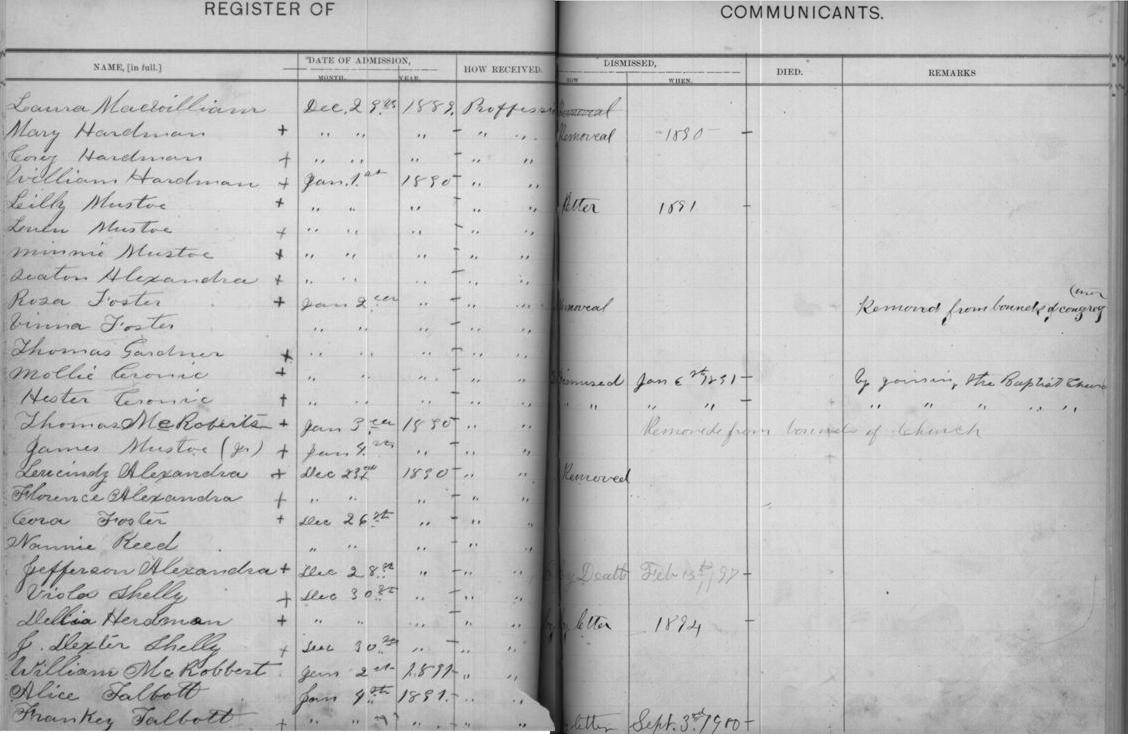 REGISTER OF COMMUNICANTS.
NAME, [in full.] DATE OF ADMISSION, HOW RECEIVED. DISMISSED, DIED. REMARKS
MONTH. YEAR. HOW WHEN.
Laura MacWilliam Dec. 29th 1889, Proffess Removal
Mary Hardman + " " " " " Removeal 1890
Cory Hardman + " " " " "
William Hardman + Jan. 1st 1890 " "
Lilly Mustoe + " " " " " Letter 1891
Leven Mustoe + " " " " "
Minnie Mustoe + " " " " "
Seaton Alexandra + " " " " "
Rosa Foster + Jan 2 " " " Removeal Removed from bounds of congreg
Vinna Foster " " " " "
Thomas Gardner + " " " " "
Mollie Cronic + " " " " " Dismissed Jan 6th 1891 by joining the Baptist Church
Hester Cronic + " " " " " " " " " " " " " "
Thomas McRoberts + Jan 3 1890 " " Removed from bounds of Church
James Mustoe (Jr) + Jan 4th " " "
Leucindy Alexandra + Dec 23rd 1890 " " Removed
Florence Alexandra + " " " " "
Cora Foster + Dec 26th " " "
Nannie Reed " " " " "
Jefferson Alexandra + Dec 28th " " " by Death Feb 13th/97
Viola Shelly + Dec 30th " " "
Dellia Herdman + " " " " " by letter 1894
J. Dexter Shelly + Dec 30th " " "
William McRobbert Jan 2 1891 " "
Alice Talbott Jan 4th 1891 " "
Frankey Talbott + " " " " " letter Sept. 3rd 1900